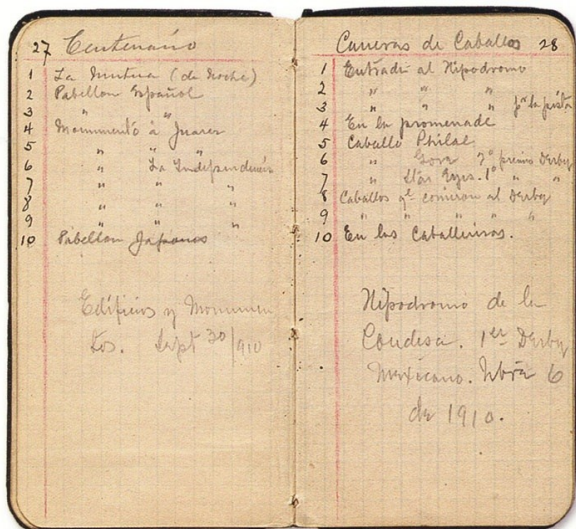 27 Centenario
1 La Mutua (de Noche)
2 Pabellon Español
3 " "
4 Monumento á Juarez
5 " " "
6 " La Independencia
7 " " "
8 " " "
9 " " "
10 Pabellon Japones
Edificios y Monumen
tos. Sept 30/910
Carreras de Caballos 28
1 Entrada al Hipodromo
2 " " "
3 " " " por la pista
4 En la promenade
5 Caballo Philal
6 " Gora 2º premio Derby
7 " Star Eyes. 1º " "
8 Caballos qe corrieron al Derby
9 " " " " "
10 En las Caballerizas.
Hipodromo de la
Condesa. 1er Derby
Mexicano. Nbre 6
de 1910.